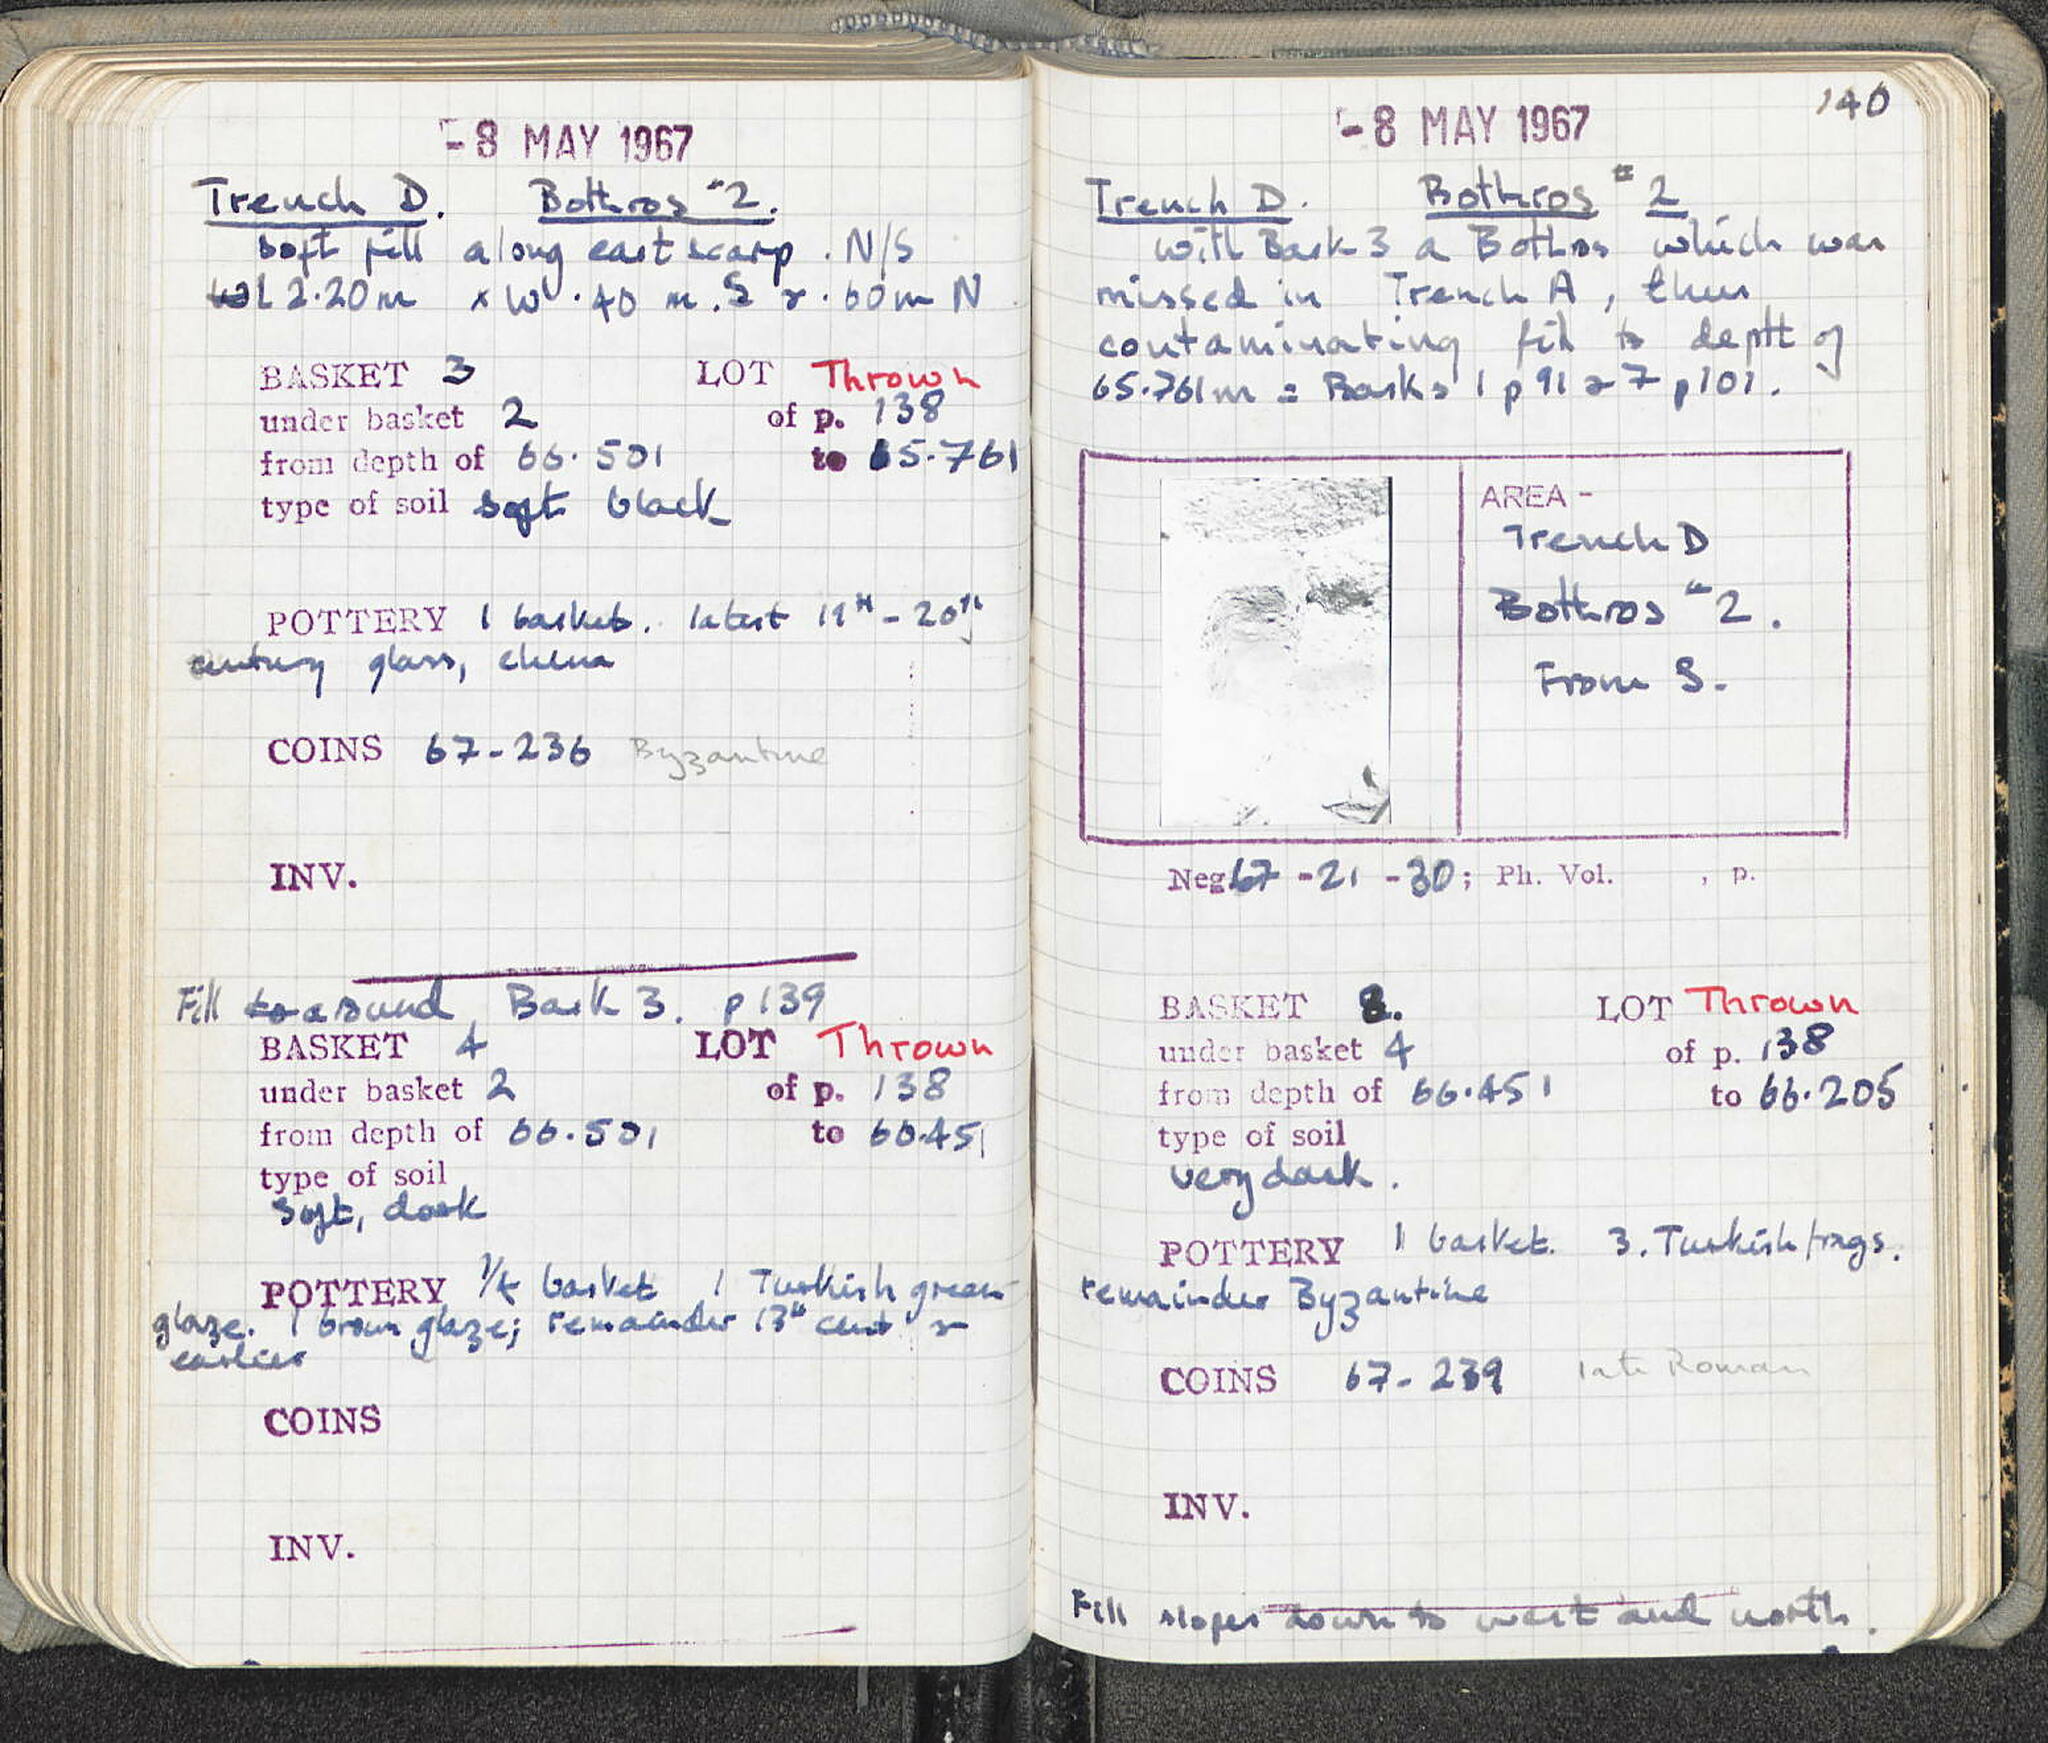 -8 MAY 1967
Trench D. Bothros #2.
soft fill along east scarp. N/S
L 2.20m x W .40 m. S & .60m N
BASKET 3 LOT Thrown
under basket 2 of p. 138
from depth of 66.501 to 65.761
type of soil soft black
POTTERY 1 basket. latest 19th - 20th
century glass, china
COINS 67-236 Byzantine
INV.
Fill around Bask 3. p 139
BASKET 4 LOT Thrown
under basket 2 of p. 138
from depth of 66.501 to 66.451
type of soil
soft, dark
POTTERY 1/4 basket 1 Turkish green
glaze. 1 brown glaze; remainder 13th cent &
earlier
COINS
INV.
140
-8 MAY 1967
Trench D. Bothros #2
with Bask 3 a Bothros which was
missed in Trench A, thus
contaminating fill to depth of
65.761m = Basks 1 p 91 & 7 p101.
AREA -
Trench D
Bothros #2.
From S.
Neg 67 -21 -30; Ph. Vol. , p.
BASKET 8. LOT Thrown
under basket 4 of p. 138
from depth of 66.451 to 66.205
type of soil
very dark.
POTTERY 1 basket. 3. Turkish frags.
remainder Byzantine
COINS 67-239 late Roman
INV.
Fill slopes down to west and north.